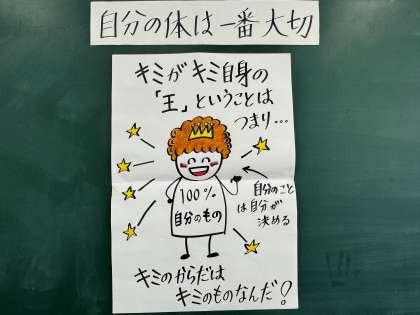 自分の体は一番大切
キミがキミ自身の
「王」ということは
つまり…
100%
自分のもの
自分のこと
は自分が
決める
キミのからだは
キミのものなんだ!